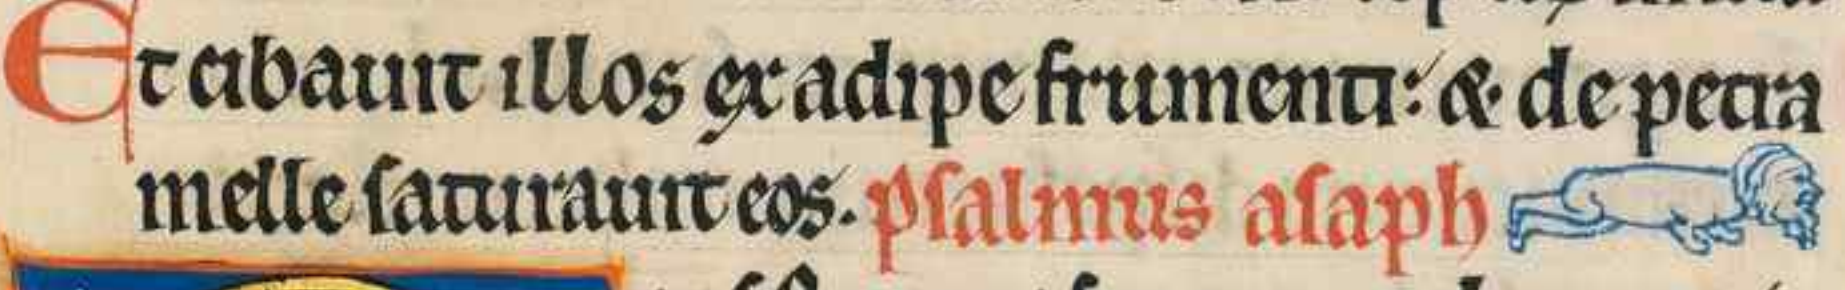 Et cibauit illos ex adipe frumenti: & de petra
melle saturauit eos. Psalmus asaph